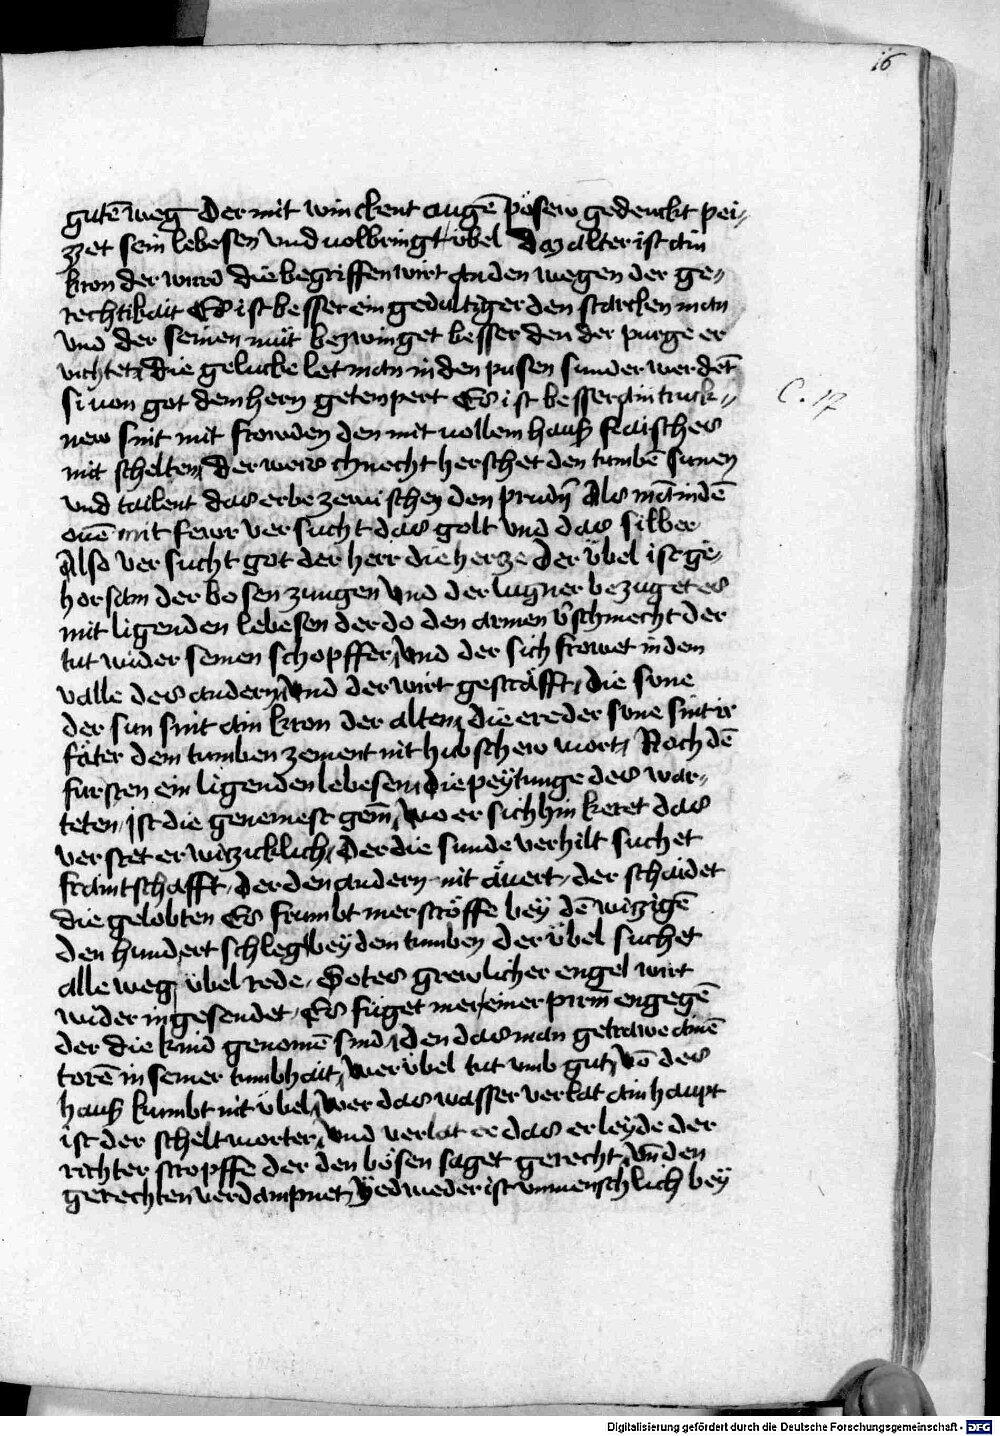 16
gutē weg Der mit winckent augē pösew gedenckt pei-
zzet sein lebesen vnd uolbringt übel Daz alter ist ain
kron der wird die begriffen wirt an den wegen der ge-
rechtikait Es ist besser ein gedultiger den starcken man
vnd der seinen mut bezwinget besser den der purge er
vichtet die gelucke let man in den pusen sunder werdēt
si von got dem hern getempert Es ist besser ain truck-
C. 17
new snit mit frowden den mit uollem hauß flaisches
mit schelten, der weis chnecht herschet den tumbē sunen
vnd tailent das erbe zewischen den prudn̄ Als mā in dē
ouē mit fewr versucht das golt vnd das silber
Also versucht got der herr die hercze Der übel ist ge-
horsam der bosen zungen vnd der lugner bezuget es
mit ligenden lebesen der do den armen v̄schmecht der
tut wider seinen schopffer, vnd der sich frowet in dem
valle des andern, vnd der wirt gestrafft, die sune
der sun sint ain kron der alten, die ere der sune sint ir
fäter dem tumben zement nit hubschew wort, Noch dē
fursten ein ligenden lebesen, die peytunge des war-
teten, ist die genemest gem̄, wo er sich hin keret das
verstet er witzicklich, Der die sunde verhilt suchet
frawntschafft, der den andern mit äuert, der schaidet
die gelobten Es frumbt mer ströffe bey dē witzigē
den hundert schleg bey dem tumben der übel suchet
alle weg übel rede, Gotes grewlicher engel wirt
wider in gesendet, Es füget mer einer pirin̄ engegē
der die kind genomē sind, den das man getrawe ainē
torē in seiner tumbhait, wer übel tut umb gut, vō des
hauß kumbt nit übel, wer das wasser verlat ain haupt
ist der scheltworter, vnd verlat ee das er leyde der
richter stropffe der den bösen saget gerecht, vn̄ den
gerechten verdampnet, yedweder ist vnmenschlich bey
Digitalisierung gefördert durch die Deutsche Forschungsgemeinschaft - DFG